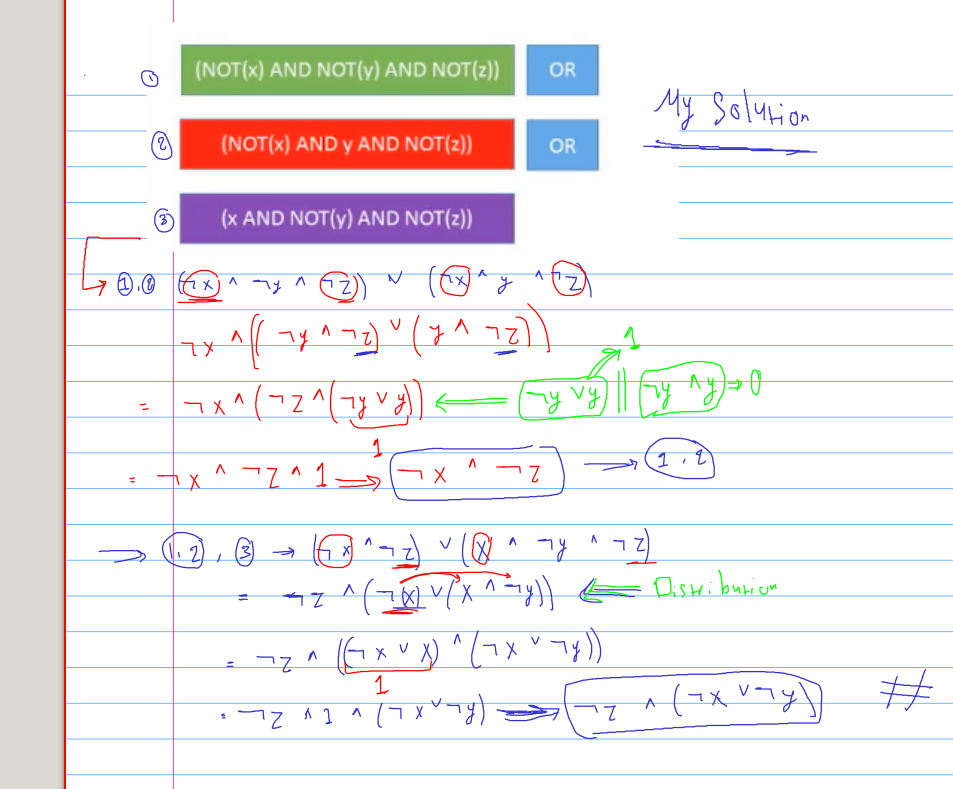 ① (NOT(x) AND NOT(y) AND NOT(z)) OR
My Solution
② (NOT(x) AND y AND NOT(z)) OR
③ (x AND NOT(y) AND NOT(z))
①,② (¬x ∧ ¬y ∧ ¬z) ∨ (¬x ∧ y ∧ ¬z)
¬x ∧ ((¬y ∧ ¬z) ∨ (y ∧ ¬z))
= ¬x ∧ (¬z ∧ (¬y ∨ y)) ⇐ ¬y ∨ y → 1 || ¬y ∧ y ⇒ 0
1
= ¬x ∧ ¬z ∧ 1 ⇒ ¬x ∧ ¬z → 1,2
⇒ 1,2, ③ → (¬x ∧ ¬z) ∨ (x ∧ ¬y ∧ ¬z)
= ¬z ∧ (¬(x) ∨ (x ∧ ¬y)) ⇐ Distribution
= ¬z ∧ ((¬x ∨ x) ∧ (¬x ∨ ¬y))
1
= ¬z ∧ 1 ∧ (¬x ∨ ¬y) → ¬z ∧ (¬x ∨ ¬y) #